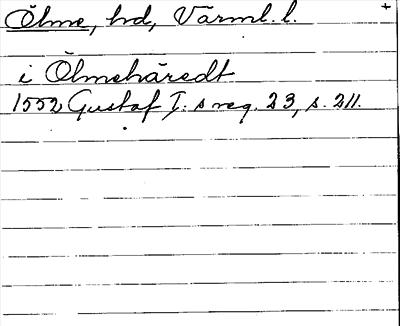 Ölme, hd, Värml. l. +
i Ölmehäredt
1552 Gustaf I:s reg. 23, s. 211.